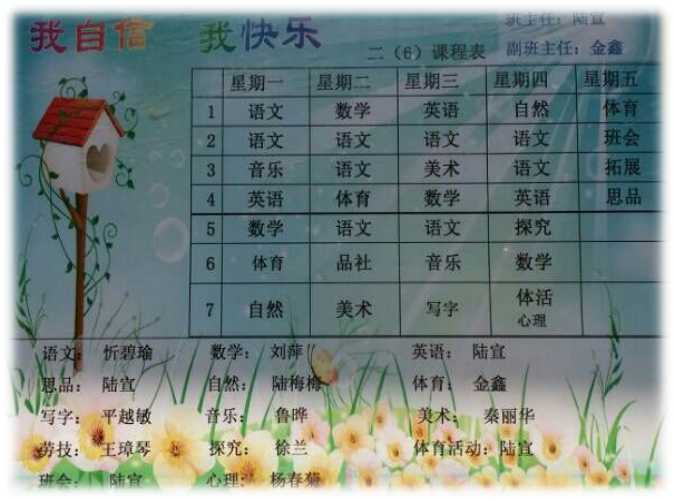 我自信 我快乐
班主任：陆宣
二（6）课程表 副班主任：金鑫
星期一 星期二 星期三 星期四 星期五
1 语文 数学 英语 自然 体育
2 语文 语文 语文 语文 班会
3 音乐 语文 美术 语文 拓展
4 英语 体育 数学 英语 思品
5 数学 语文 语文 探究
6 体育 品社 音乐 数学
7 自然 美术 写字 体活
心理
语文： 忻碧瑜 数学： 刘萍 英语： 陆宣
思品： 陆宣 自然： 陆梅梅 体育： 金鑫
写字： 平越敏 音乐： 鲁晔 美术： 秦丽华
劳技： 王璋琴 探究： 徐兰 体育活动：陆宣
班会： 陆宣 心理： 杨春菊